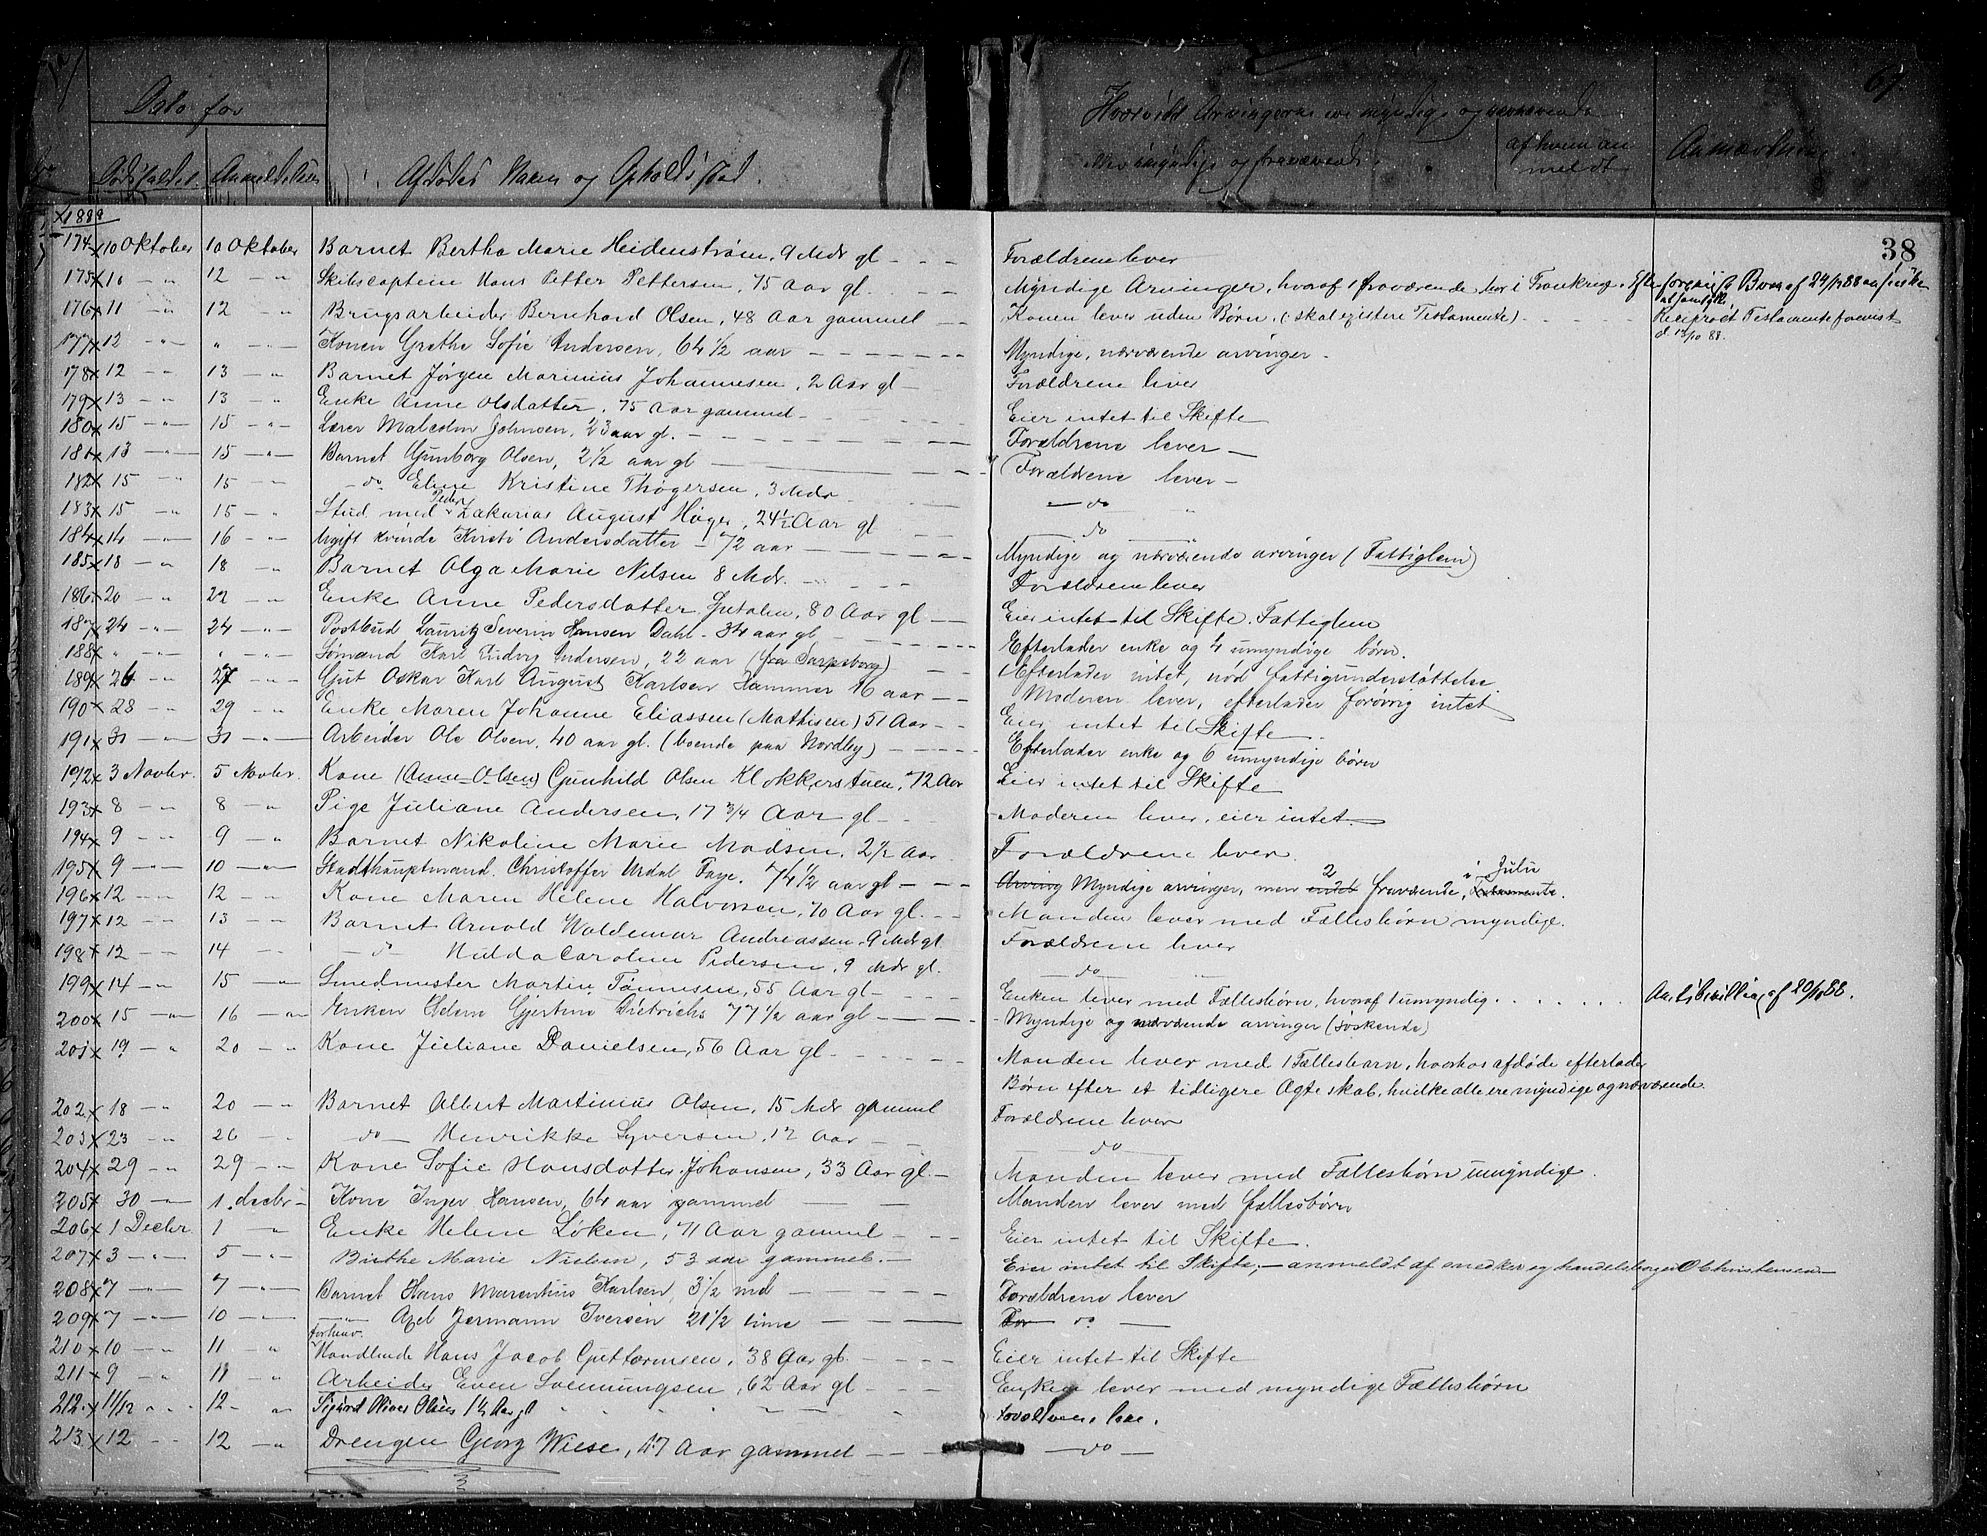 Dato for
Dødsfaldet. Anmeldelsen
Afdødes Navn og Opholdssted.
Hvorvidt Arvingerne ere myndige og nærværende
eller umyndige og fraværende.
af hvem an
meldt
Anmærkning
38
1888
174 x 10 Oktober 10 Oktober Barnet Bertha Marie Heidenstrøm, 9 Mdr gl - - - Forældrene lever
175 x 10 — " 12 — " Skibscaptein Hans Petter Pettersen, 75 Aar gl. Myndige Arvinger, hvoraf 1 fraværende
176 x 11 " 12 — " Brugsarbeider Bernhard Olsen, 48 Aar gammel — Konen lever uden Børn, (: skal existere Testamente) Reciprockt Testamente forevist
d. 12/10 88.
177 x 12 — " — " — " Konen Grethe Sofie Andersen, 64 1/2 aar — Myndige, nærværende arvinger -
178 x 12 — " 13 — " Barnet Jørgen Marinius Johannesen, 2 Aar gl — Forældrene lever
179 x 13 — " 13 — " Enke Anne Olsdatter, 75 Aar gammel - Eier intet til Skifte
180 x 15 — " 15 — " Lærer Malcolm Johnsen, 23 aar gl. — Forældrene lever —
181 x 13 — " 15 — " Barnet Gunborg Olsen, 2 1/2 aar gl — Forældrene lever —
182 x 15 " 15 — " — do Eline Kristine Thøgersen, 3 Mdr — do "
183 x 15 " 15 — " Stud med Peder Zakarias August Høyer, 24 1/2 Aar gl do
184 x 14 — " 16 — " Ugift kvinde Kirsti Andersdatter — 72 aar — Myndige og nærværende arvinger (Fattiglem)
185 x 18 — " 18 — " Barnet Olga Marie Nilsen 8 Mdr. — Forældrene lever
186 x 20 — " 22 — " Enke Anne Pedersdatter, 80 Aar gl — Eier intet til Skifte. Fattiglem
187 x 24 — " 24 — " Postbud Lauritz Severin Hansen Dahl - 34 aar gl Efterlader enke og 4 umyndige børn.
188 x " " Sømand Karl Ludvig Andersen, 22 aar (fra Sarpsborg) — Efterlader intet, nød fattigunderstøttelse.
189 x 26 — " 27 — " Gut Oskar Karl August Karlsen Hammer 16 aar — Moderen lever, efterlader forøvrig intet
190 x 28 — " 29 — " Enke Maren Johanne Eliassen (Mathisen) 51 Aar — Eier intet til Skifte.
191 x 31 — " 31 — " Arbeider Ole Olsen, 40 aar gl. (boende paa Nordby) — Efterlader enke og 6 umyndige børn
192 x 3 Novbr. 5 Novbr. Kone (Anne Olsen) Gunhild Olsen Klokkerstuen, 72 Aar Eier intet til Skifte
193 x 8 — " 8 — " Pige Juliane Andersen, 17 3/4 Aar gl - Moderen lever, eier intet.
194 x 9 — " 9 — " Barnet Nikoline Marie Madsen, 2 1/2 Aar Forældrene lever.
195 x 9 — " 10 — " Stadthauptmand Christoffer Urdal Faye. 74 1/2 aar gl — Arving Myndige arvinger, men intet 2 fraværende, Testamente. i Julu
196 x 12 — " 12 — " Kone Maren Helene Halvorsen, 70 Aar gl. — Manden lever med Fællesbørn myndige.
197 x 12 — " 13 — " Barnet Arnold Waldemar Andreassen, 9 Mdr gl Forældrene lever
198 x 12 — " 14 — " — do — Hulda Caroline Pedersen, 9 Mdr gl. — do
199 x 14 — " 15 — " Smedmester Martin Tønnesen, 55 Aar gl — Enken lever med Fællesbørn, hvoraf 1 umyndig. . . . . af 20/11 88.
200 x 15 — " 16 — " Enken Helene Gjertine Dietrichs 77 1/2 aar gl — Myndige og nærværende arvinger (søskende)
201 x 19 — " 20 — " Kone Juliane Danielsen, 56 Aar gl. — Manden lever med 1 Fællesbarn, hvorhos afdøde efterlader
Børn efter et tidligere Ægteskab, hvilke alle ere myndige og nærværende.
202 x 18 — " 20 — " Barnet Albert Martinius Olsen, 15 Mdr gammel Forældrene lever
203 x 23 — " 26 — " — do — Henrikke Syversen, 12 Aar — do
204 x 29 — " 29 — " Kone Sofie Hansdatter Johansen, 33 Aar gl. — Manden lever med Fællesbørn umyndige.
205 x 30 — " 1. decbr — Kone Inger Hansen, 64 aar gammel — Manden lever med fællesbørn
206 x 1 Decbr. 1 — " Enke Helene Løken, 71 Aar gammel — Eier intet til Skifte.
207 x 3 — " 5 — " Birthe Marie Nielsen, 53 aar gammel. — Eier intet til Skifte; — anmeldt af snedker og handelsborger O Christensen
208 x 7 — " 7 — " Barnet Hans Marenthius Karlsen, 3 1/2 md — Forældrene lever
209 x 7 — " 10 — " — " Axel Jermann Iversen 21 1/2 time — For do —
210 x 10 — " 11 — " forhenv. Handlende Hans Jacob Guttormsen, 38 Aar gl. — Eier intet til Skifte
211 x 9 — " 11 — " Arbeider Even Svennungsen, 62 Aar gl — Enken lever med myndige Fællesbørn
212. x 11/12 " 12 - " Sigurd Oliver Olsen 1 1/2 Aar gl Forældrene leve.
213 x 12 — " 12 — " Drengen Georg Wiese, 17 Aar gammel — — do —